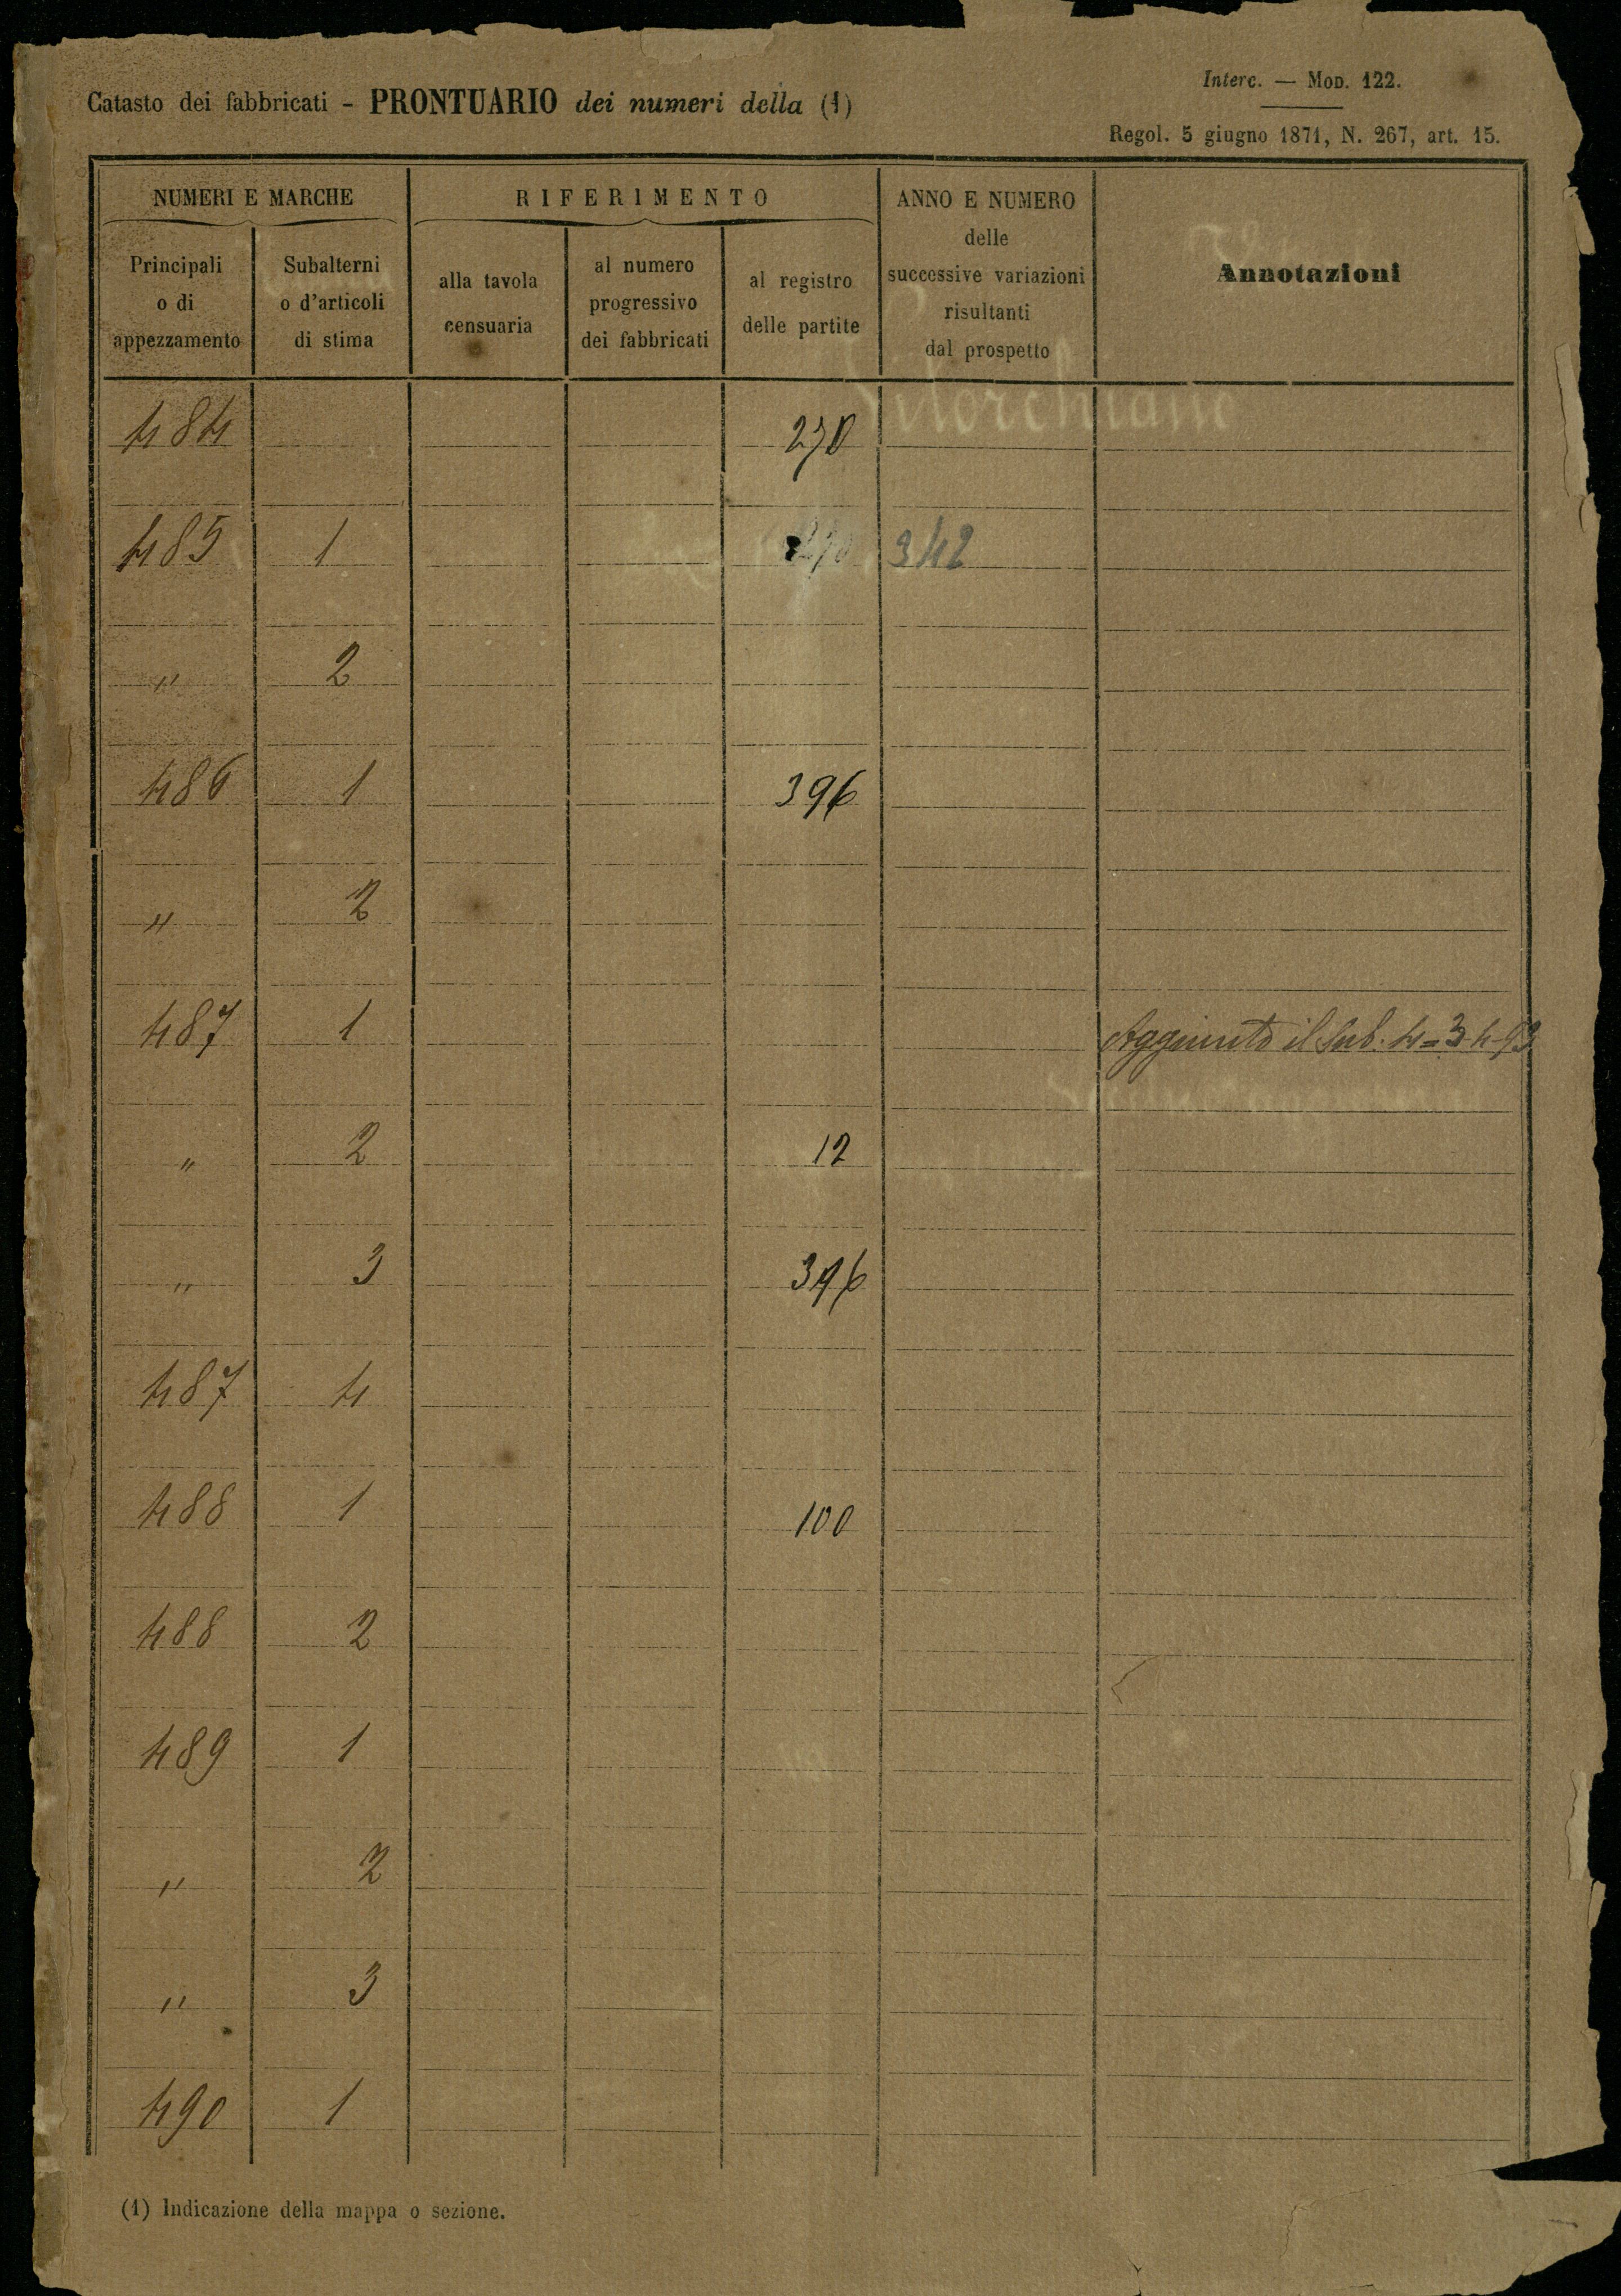 Interc. — Mod. 122.
Catasto dei fabbricati - PRONTUARIO dei numeri della (1)
Regol. 5 giugno 1871, N. 267, art. 15.
NUMERI E MARCHE RIFERIMENTO ANNO E NUMERO delle successive variazioni risultanti dal prospetto Annotazioni
Principali o di appezzamento Subalterni o d'articoli di stima alla tavola censuaria al numero progressivo dei fabbricati al registro delle partite
484 270
485 1 342
" 2
486 1 396
" 2
487 1 Aggiunto il Sub. 4 = 3-4-93
" 2 12
" 3 396
487 4
488 1 100
488 2
489 1
" 2
" 3
490 1
(1) Indicazione della mappa o sezione.